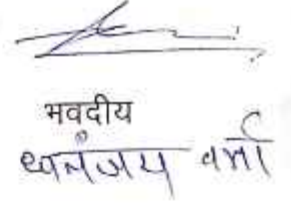 भवदीय
धनंजय वर्मा